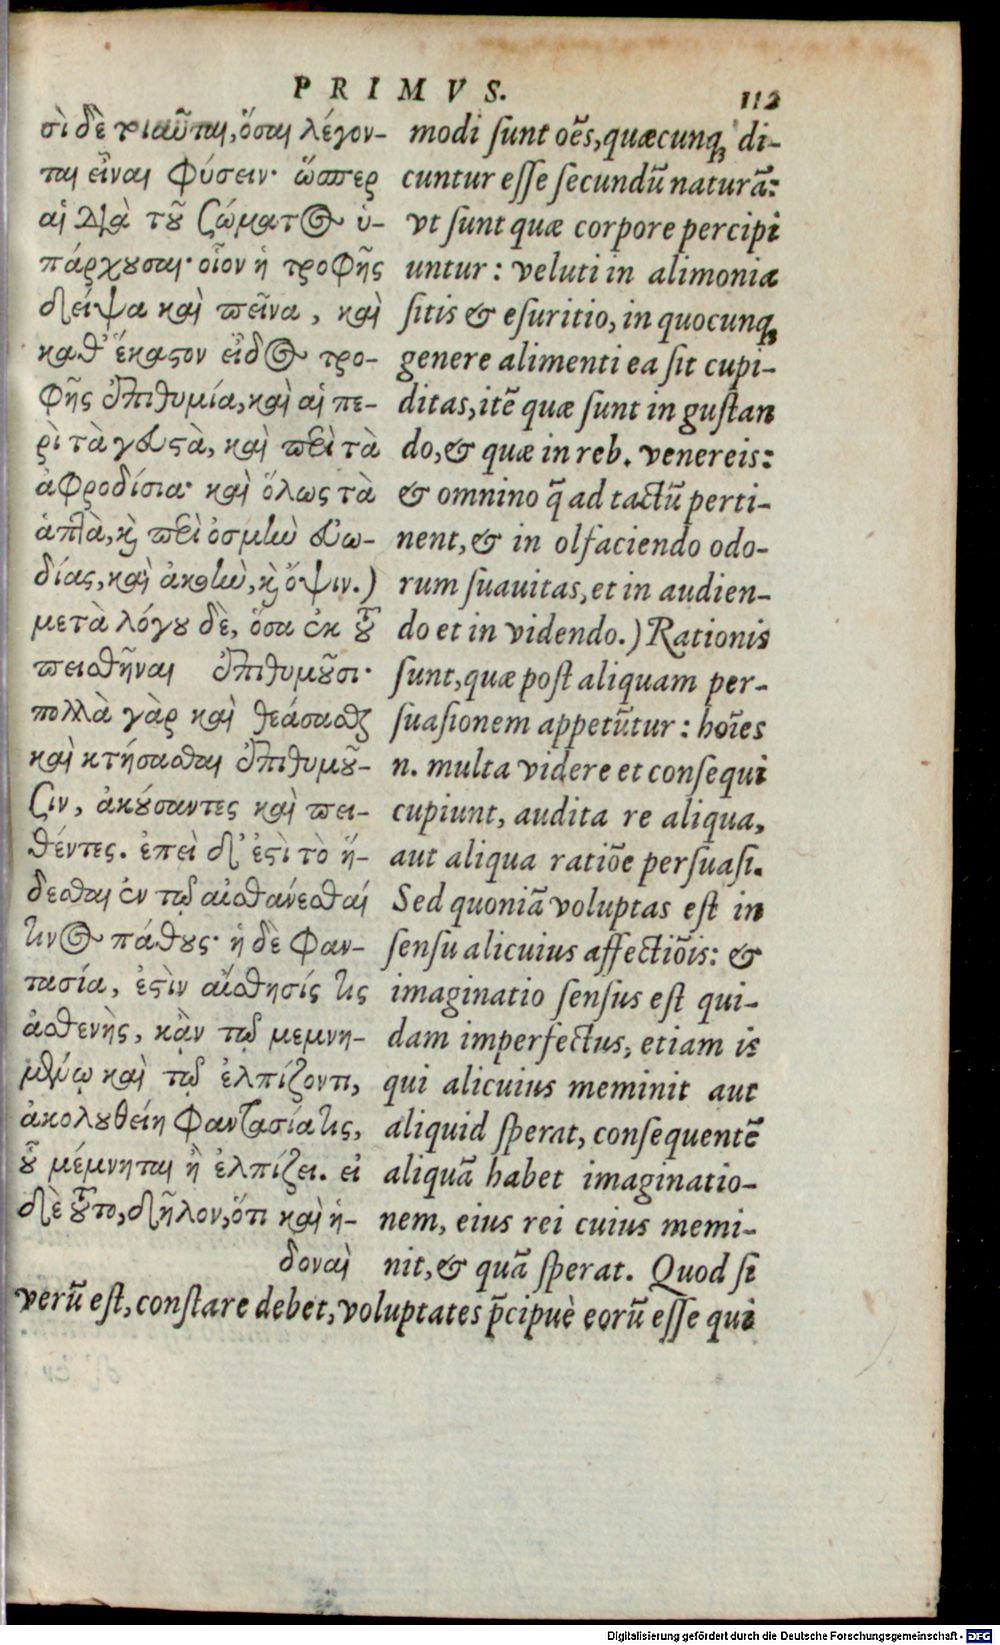 PRIMVS.
112
σὶ δὲ τοιαῦται, ὅσαι λέγον-
ται εἶναι φύσειν· ὥσπερ
αἱ διὰ τοῦ σώματος ὑ-
πάρχουσαι· οἷον ἡ τροφῆς
δείψα καὶ πεῖνα, καὶ
καθ' ἕκαστον εἶδος τρο-
φῆς ἐπιθυμία, καὶ αἱ πε-
ρὶ τὰ γευστὰ, καὶ περὶ τὰ
ἀφροδίσια· καὶ ὅλως τὰ
ἁπτὰ, καὶ περὶ ὀσμὴν εὐω-
δίας, καὶ ἀκοὴν, καὶ ὄψιν.)
μετὰ λόγου δὲ, ὅσα ἐκ τοῦ
πεισθῆναι ἐπιθυμοῦσι·
πολλὰ γὰρ καὶ θεάσασθαι
καὶ κτήσασθαι ἐπιθυμοῦ-
σιν, ἀκούσαντες καὶ πει-
θέντες. ἐπεὶ δ' ἐστὶ τὸ ἥ-
δεσθαι ἐν τῷ αἰσθάνεσθαί
τινος πάθους· ἡ δὲ φαν-
τασία, ἐστὶν αἴσθησίς τις
ἀσθενὴς, κἂν τῷ μεμνη-
μένῳ καὶ τῷ ἐλπίζοντι,
ἀκολουθείη φαντασία τις,
οὗ μέμνηται ἢ ἐλπίζει. εἰ
δὲ τοῦτο, δῆλον, ὅτι καὶ ἡ-
δοναὶ
modi sunt oẽs, quæcunq; di-
cuntur esse secundũ naturã:
vt sunt quæ corpore percipi
untur: veluti in alimonia
sitis & esuritio, in quocunq;
genere alimenti ea sit cupi-
ditas, itẽ quæ sunt in gustan
do, & quæ in reb. venereis:
& omnino q̃ ad tactũ perti-
nent, & in olfaciendo odo-
rum suauitas, et in audien-
do et in videndo.) Rationis
sunt, quæ post aliquam per-
suasionem appetũtur: hoĩes
n. multa videre et consequi
cupiunt, audita re aliqua,
aut aliqua ratiõe persuasi.
Sed quoniã voluptas est in
sensu alicuius affectiõis: &
imaginatio sensus est qui-
dam imperfectus, etiam is
qui alicuius meminit aut
aliquid sperat, consequentẽ
aliquã habet imaginatio-
nem, eius rei cuius memi-
nit, & quã sperat. Quod si
verũ est, constare debet, voluptates p̃cipuè eorũ esse qui
Digitalisierung gefördert durch die Deutsche Forschungsgemeinschaft - DFG